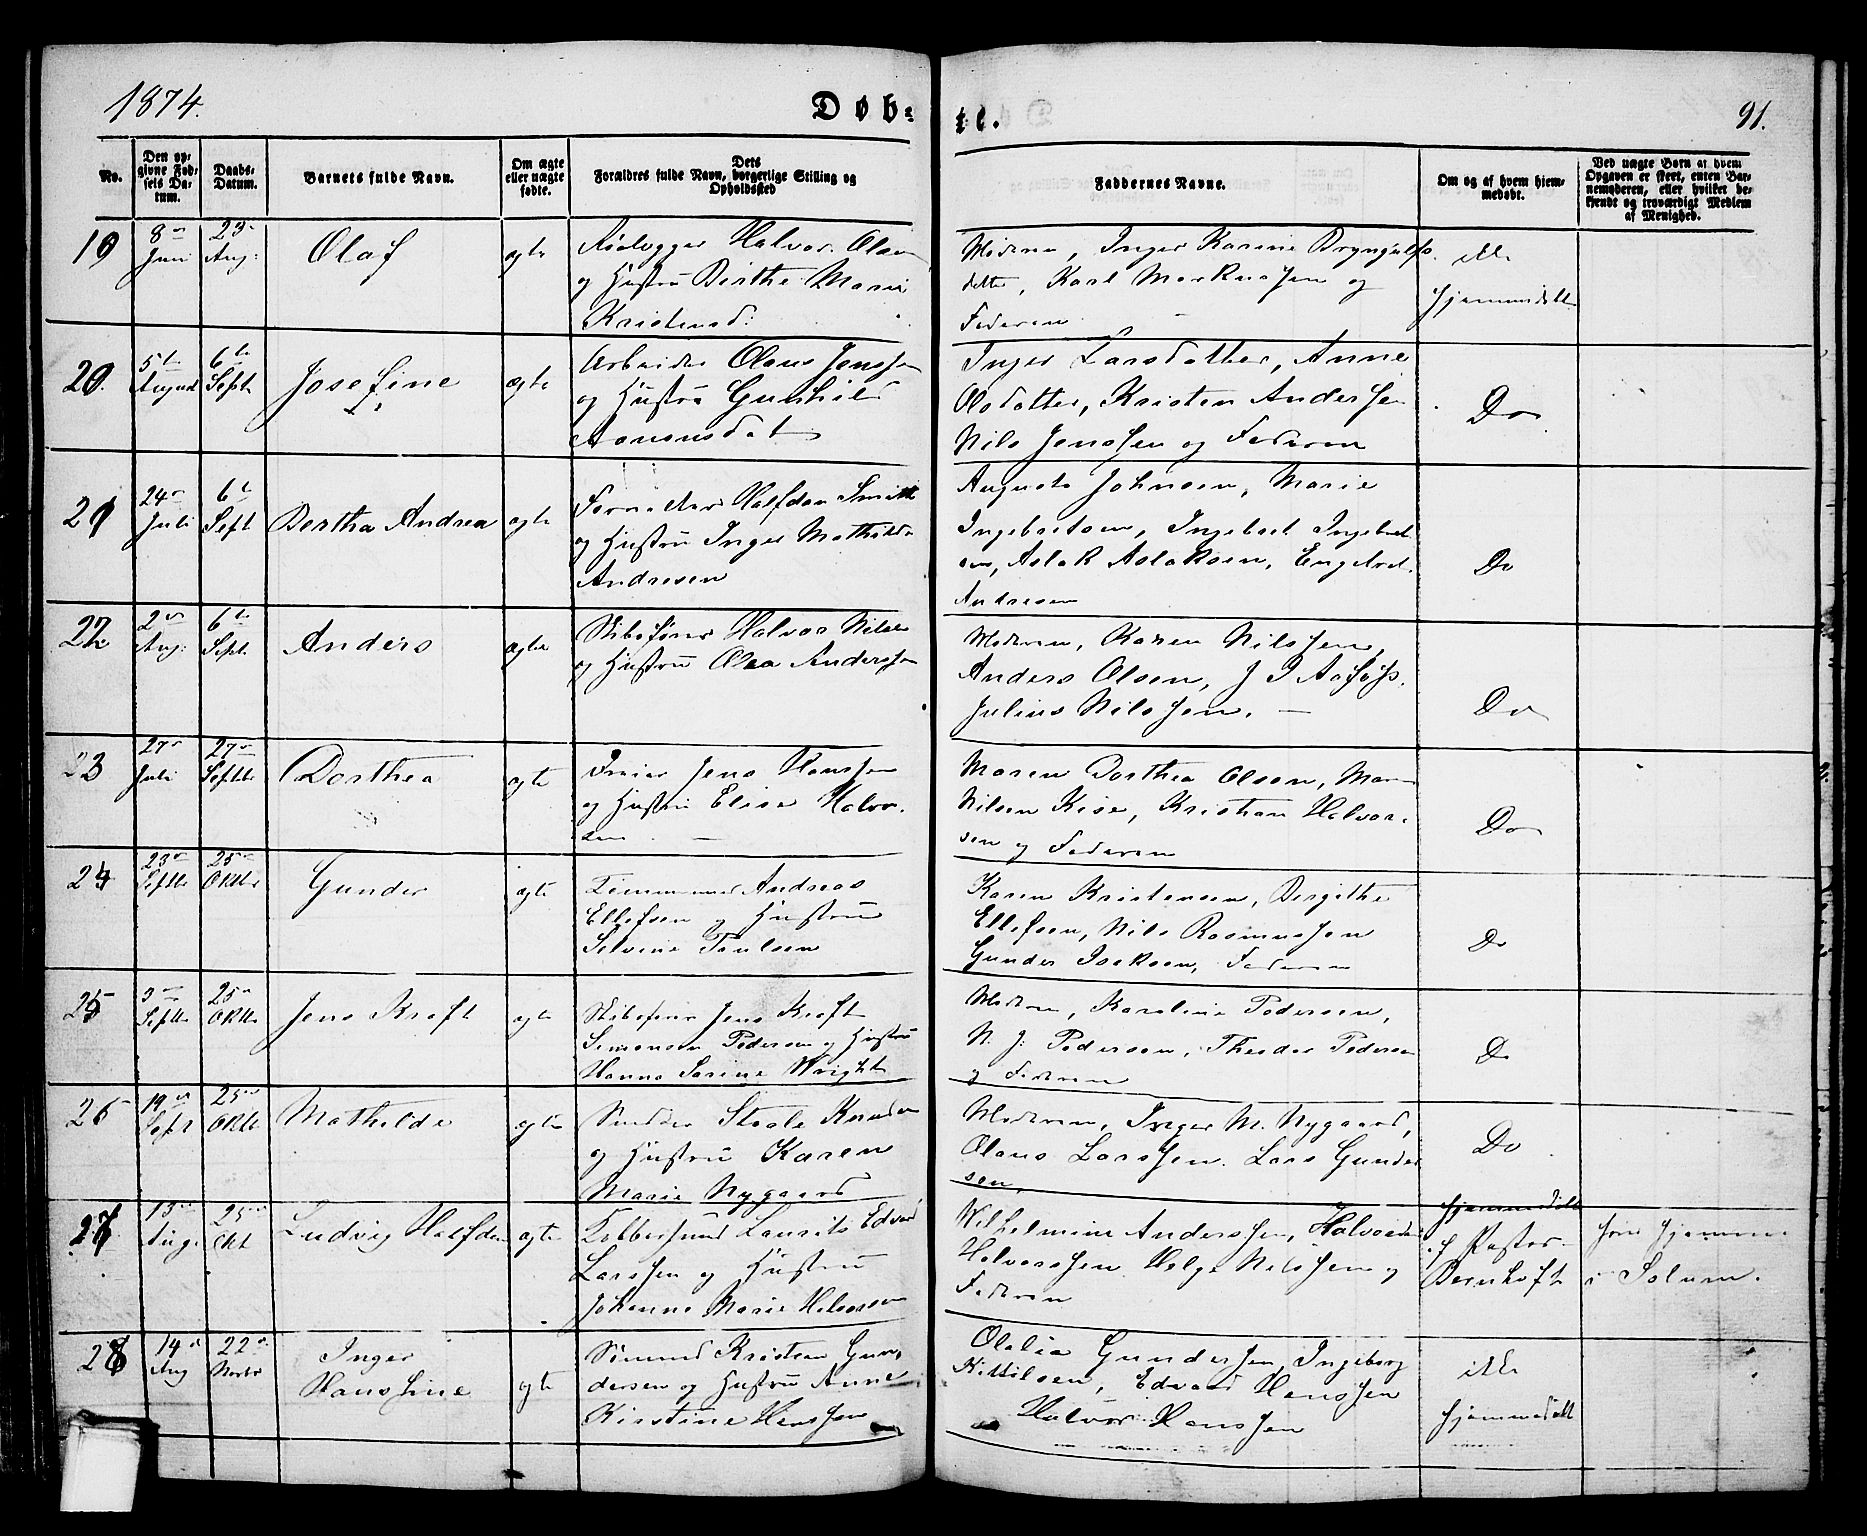 1874.
Døb-
te.
91.
No.
Den op-
givne Fød-
sels Da-
tum.
Daabs-
Datum.
Barnets fulde Navn.
Om ægte
eller uægte
fødte.
Dets
Forældres fulde Navn, borgerlige Stilling og
Opholdssted
Faddernes Navne.
Om og af hvem hjem-
medøbt.
Ved uægte Børn af hvem
Opgaven er skeet, enten Bar-
nemoderen, eller hvilket be-
kjendt og troværdigt Medlem
af Menighed.
19
8
Juni
29
Aug:
Olaf
ægte
Halvor Olsen
og Hustru Birthe Marie
Kristensd:
Moderen, Inger Karine Bryngulfs
datter, Karl Markussen og
Faderen
ikke
hjemmedøbt
20.
5te
August
6te
Sept
Josefine
ægte
Arbeider Olaus Jenssen
og Hustru Gunhild
Aanonsdat
Inger Larsdatter, Anne
Olsdatter, Kristen Anderssen
Nils Jenssen og Faderen
Do
21
24
Juli
6te
Sept
Berthe Andrea
ægte
Forvalter Halfdan Smith
og Hustru Inger Mathilde
Andresen
Augusta Johnsen, Marie
Ingebretsen, Ingebret Ingebret
sen, Aslak Aslaksen, Engebret
Andresen
Do
22
2
Aug:
6te
Sept.
Anders
ægte
Skibsfører Halvor Nilsen
og Hustru Olea Anderssen
Moderen, Karen Nilssen,
Anders Olsen, J I
Julius Nilssen.
Do
23
27
Juli
27
Septbr
Dorthea
ægte
Jens Hanssen
og Hustru Elise Halvor
sen
Maren Dorthea Olsen, Maren
Nilsen Kise, Kristian Halvor-
sen og Faderen
Do
24
23
Septbr
25
Oktbr
Gunder
ægte
Tømmermand Andreas
Ellefsen og Hustru
Selvine Paulsen
Karen Kristensen, Bergithe
Ellefsen, Nils Rasmussen
Gunder Isaksen, Faderen
Do
25
3
Septbr
25
Oktbr
Jens Kraft
ægte
Skibsfører Jens Kraft
Simonsen Pedersen og Hustru
Hanna Sarine Wright
Moderen, Karoline Pedersen,
N. J. Pedersen, Theodor Pedersen
og Faderen
Do
26
19
Sept
25
Oktbr
Mathilde
ægte
Staale Knudsen
og Hustru Karen
Marie Nygaard
Moderen, Inger M. Nygaard,
Olaus Larssen. Lars Gunder
sen,
Do
27
15
Aug.
25
Okt
Ludvig Halfdan
ægte
Laurits Edvard
Larssen og Hustru
Johanne Marie Halvorsen
Wilhelmine Anderssen, Halvor
Halvorssen Helge Nilssen og
Faderen
hjemmedøbt
af Pastor
Bernhoft
hjemme
i Solum.
28
14
Aug
22
Novbr
Inger
Hansine
ægte
Sømand Kristen Gun-
dersen og Hustru Anne
Kirstine Hanssen
Olalia Gunderssen, Ingeborg
Kittilsen, Edvard Hanssen
Halvor Hanssen
ikke
hjemmedøbt